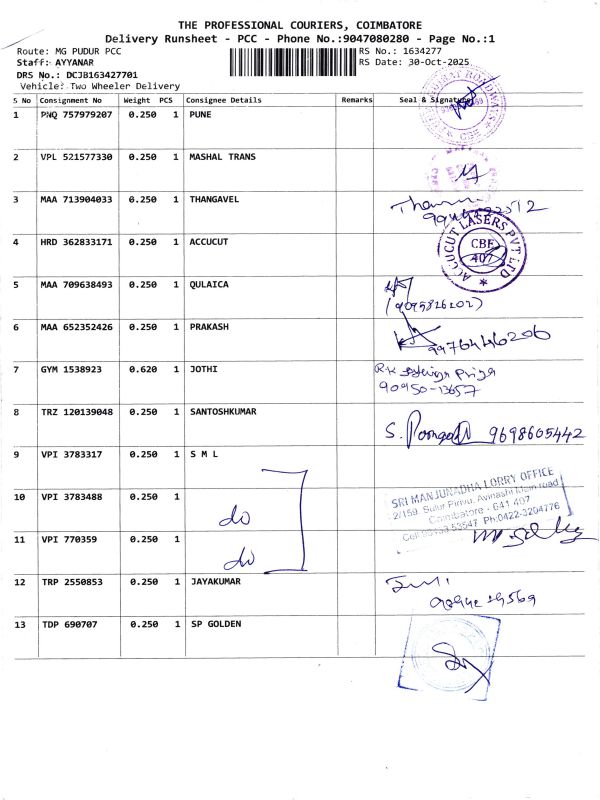 THE PROFESSIONAL COURIERS, COIMBATORE
Delivery Runsheet - PCC - Phone No.:9047080280 - Page No.:1
Route: MG PUDUR PCC
RS No.: 1634277
Staff: AYYANAR
RS Date: 30-Oct-2025
DRS No.: DCJB163427701
Vehicle: Two Wheeler Delivery
S No Consignment No Weight PCS Consignee Details Remarks Seal & Signature
1 PNQ 757979207 0.250 1 PUNE
2 VPL 521577330 0.250 1 MASHAL TRANS
3 MAA 713904033 0.250 1 THANGAVEL
4 HRD 362833171 0.250 1 ACCUCUT
ACCUCUT LASERS PVT LTD
CBE
407
5 MAA 709638493 0.250 1 QULAICA
(9095826202)
6 MAA 652352426 0.250 1 PRAKASH
9976446206
7 GYM 1538923 0.620 1 JOTHI
90950-13657
8 TRZ 120139048 0.250 1 SANTOSHKUMAR
9698605442
9 VPI 3783317 0.250 1 S M L
10 VPI 3783488 0.250 1 do
SRI MANJUNADHA LORRY OFFICE
2/159, Sulur Pirivu, Avinashi Main road
Coimbatore - 641 407
Ph:0422-3204776
11 VPI 770359 0.250 1 do
12 TRP 2550853 0.250 1 JAYAKUMAR
13 TDP 690707 0.250 1 SP GOLDEN